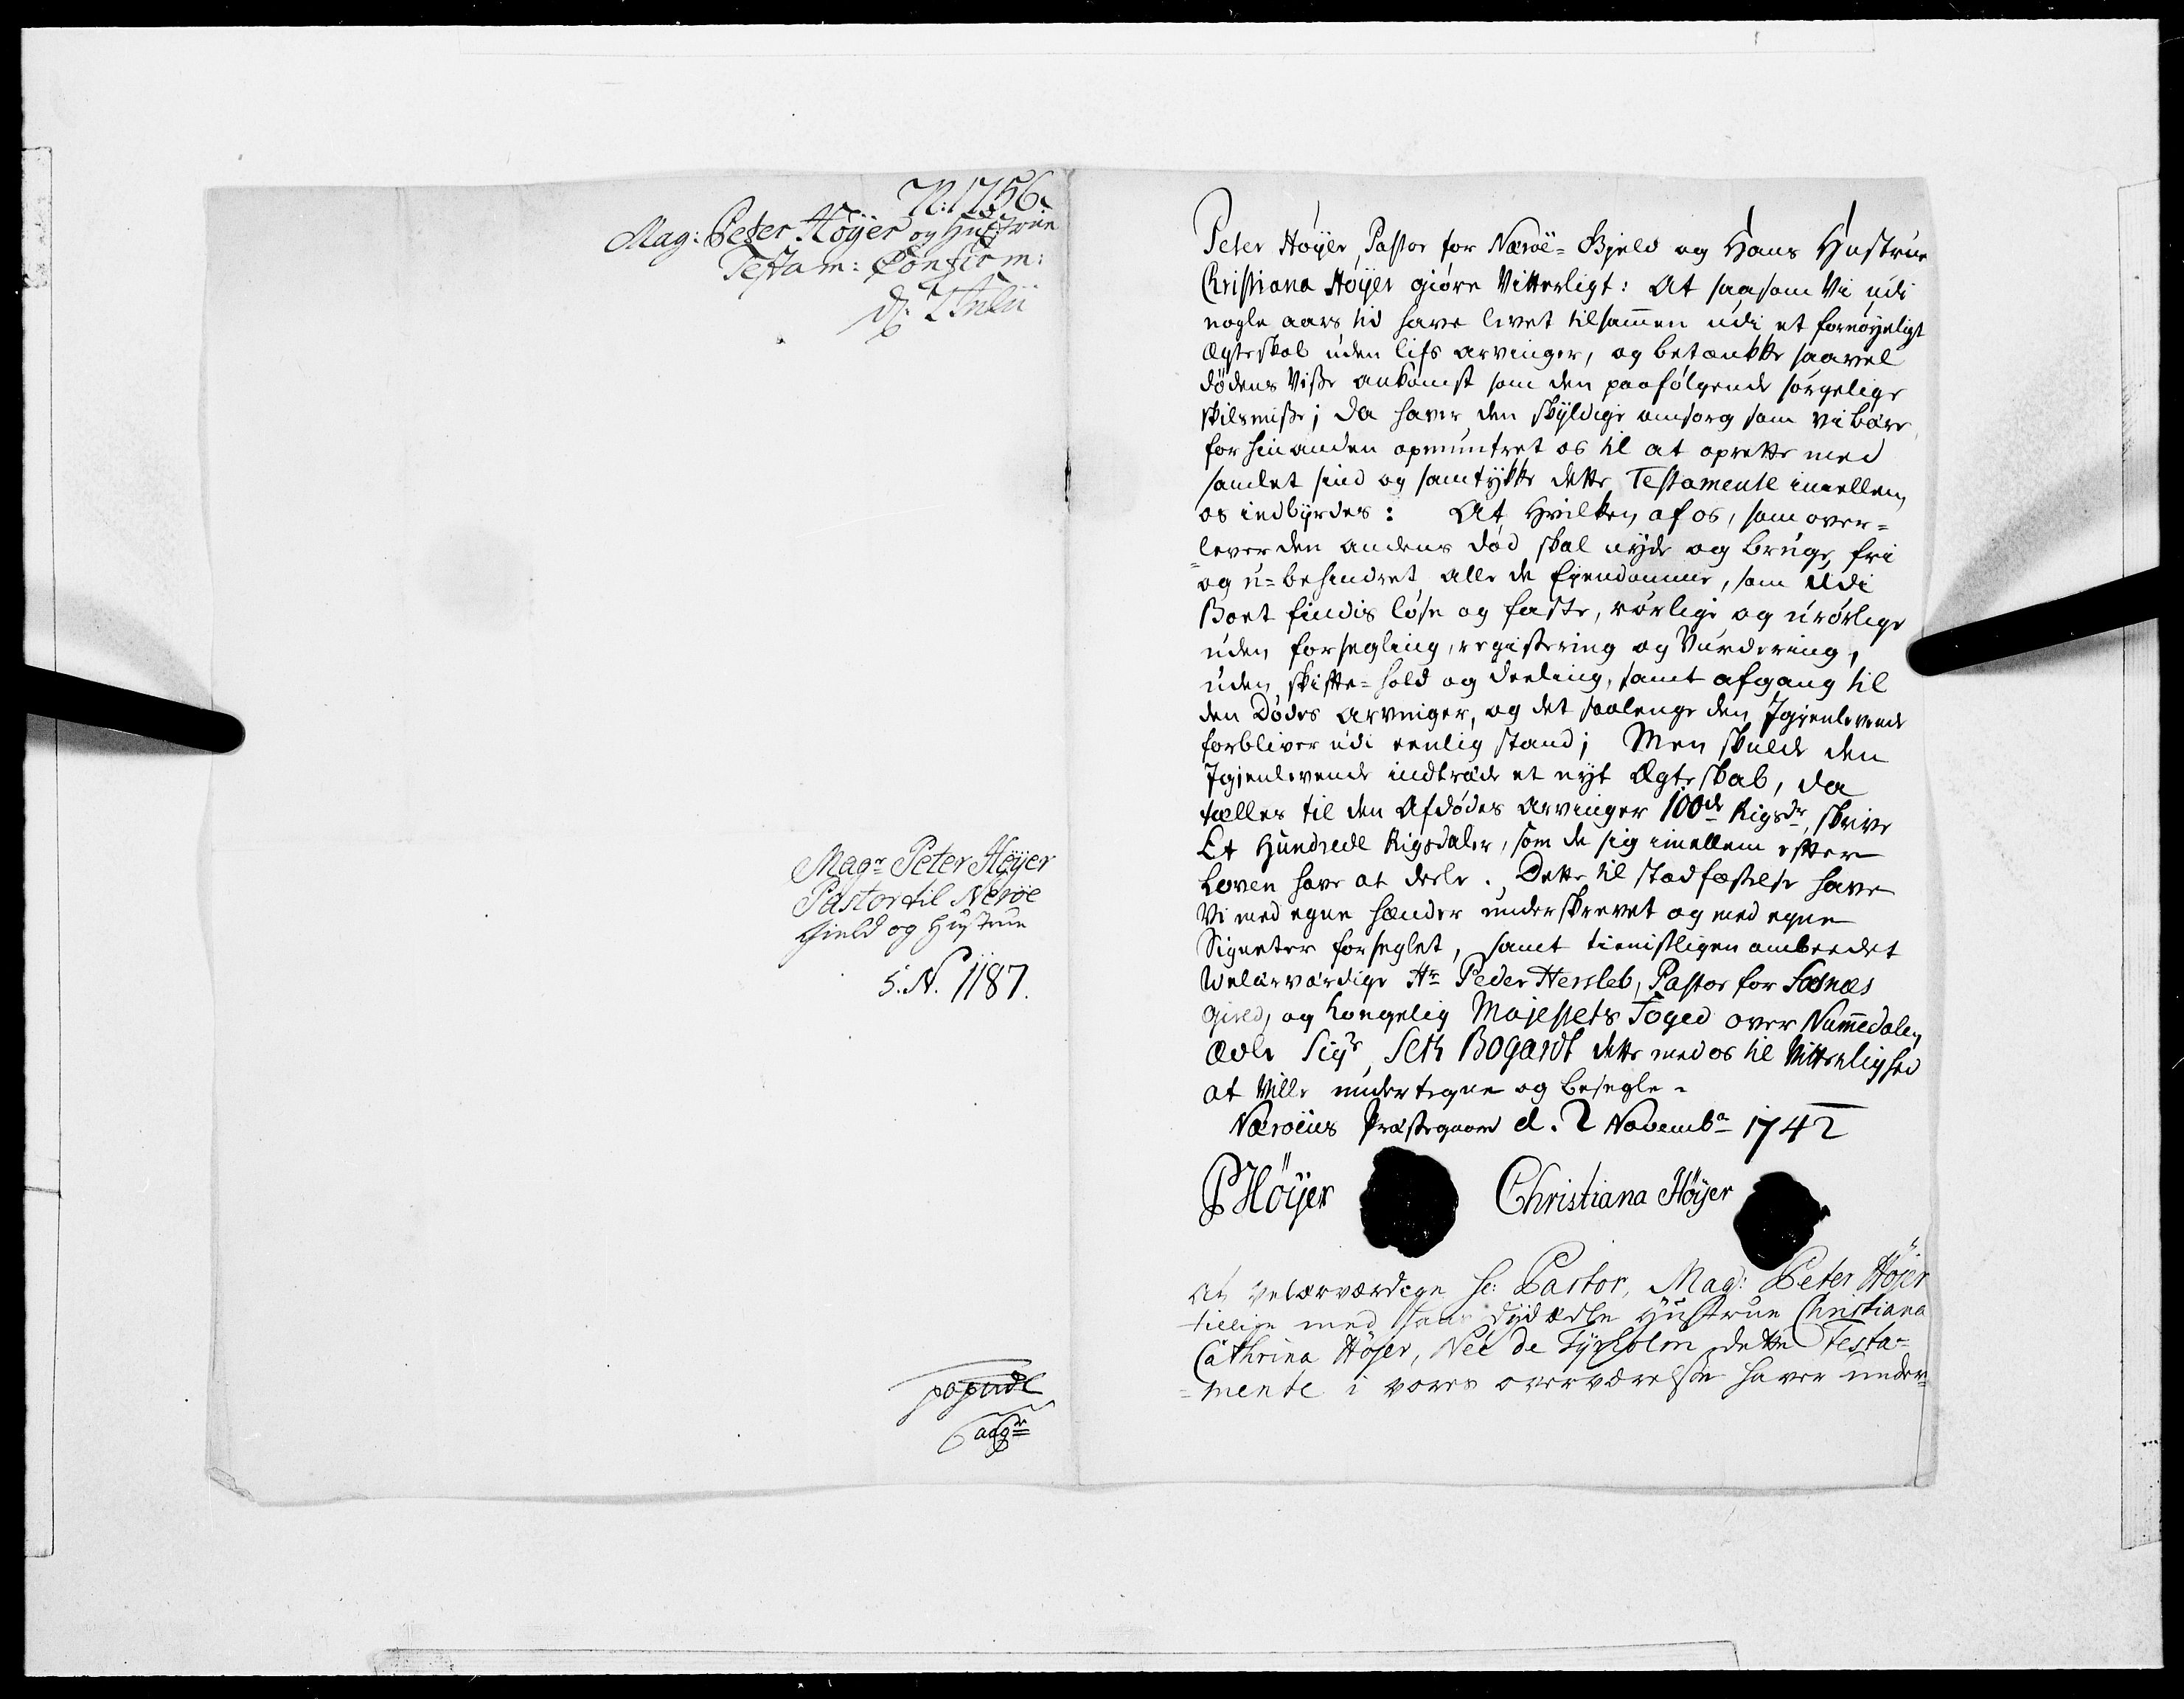 N: 1756.
Mag: Peter Höyer og Hustrue
Testam: Confirm:
d: 2 Julii
Magr Peter Höyer
Pastor til Neröe
Gield og Hustrue
5. N. 1187.
Peter Höyer, Pastor for Næröe-Gjeld og Hans Hustrue
Christiana Höyer giöre Vitterligt: At saasom Vi udi
nogle aars tid have levet tilsammen udi et fornöyeligt
Ægteskab uden lifs arvinger, og betænkt saavel
dödens Visse ankomst som den paafölgende sörgelige
skilsmisse; da haver den skyldige omsorg som vi bære
for hinanden opmuntret os til at oprette med
samlet sind og samtykke dette Testamente imellem
os indbyrdes: At hvilken af os, som over=
=lever den andens död, skal nyde og bruge, fri
og u-behindret alle de Ejendomme, som udi
Boet findis löse og faste, rörlige og urörlige
uden forsegling, registering og Vurdering,
uden skifte-hold og deeling, samt afgang til
den Dödes arvinger, og det saalenge den Igienlevende
forbliver udi eenlig stand; Men skulde den
Igienlevende indtræde et nyt Ægteskab, da
falles til den Afdödes arvinger 100de Rigsdr, skrive
Et Hundrede Rigsdaler, som de sig imellem efter
Loven have at deele. Dette til stadfæstelse have
Vi med egne hænder underskrevet og med egne
Signeter forseglet, samt tienistligen ombeedet
Welærværdige Hr Peder Hersleb, Pastor for Fosnæs
Gield, og Kongelig Majestets Foged over Nummedalen
ædle Sigr Seth Bogardt dette med os til Vitterlighed
at Ville undertegne og besegle.
Næröens Præstegaard d. 2 Novembr 1742
PHöyer Christiana Höyer
At Velærværdige hr: Pastor, Mag: Peter Höjer
tillige med hans dydædle Hustrue Christiana
Cathrina Höjer, Née de Tyrholm dette Testa=
=mente i vores overværelse haver under=